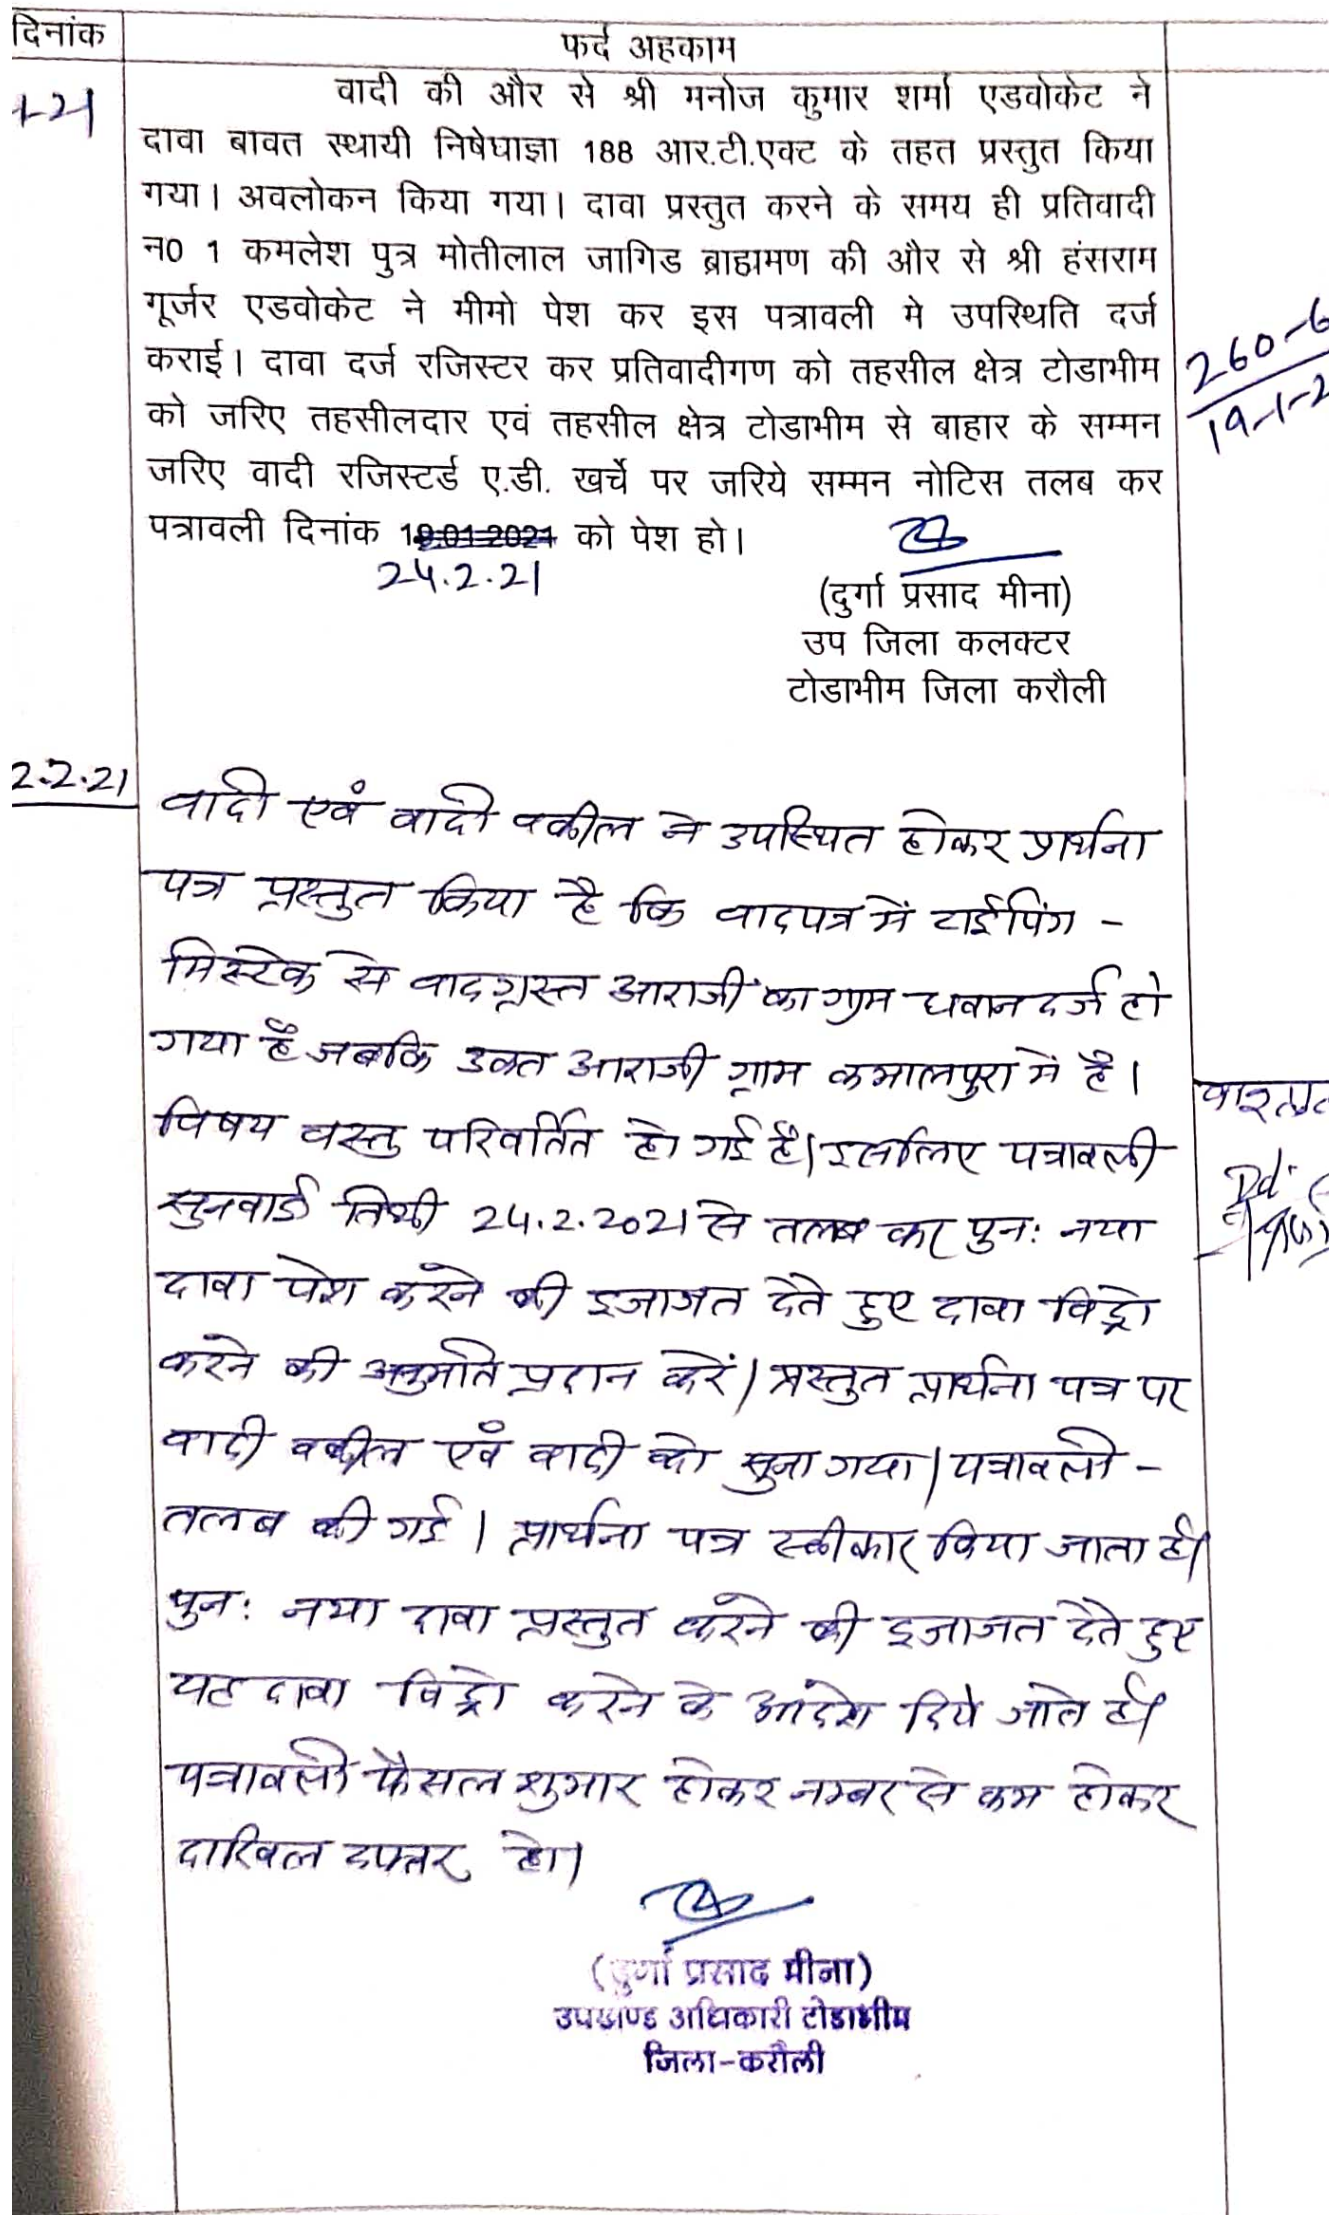 दिनांक
फर्द अहकाम
1-21
वादी की और से श्री मनोज कुमार शर्मा एडवोकेट ने
दावा बावत स्थायी निषेधाज्ञा 188 आर.टी.एक्ट के तहत प्रस्तुत किया
गया। अवलोकन किया गया। दावा प्रस्तुत करने के समय ही प्रतिवादी
न0 1 कमलेश पुत्र मोतीलाल जागिड ब्राह्यमण की और से श्री हंसराम
गूर्जर एडवोकेट ने मीमो पेश कर इस पत्रावली मे उपस्थिति दर्ज
कराई। दावा दर्ज रजिस्टर कर प्रतिवादीगण को तहसील क्षेत्र टोडाभीम
को जरिए तहसीलदार एवं तहसील क्षेत्र टोडाभीम से बाहार के सम्मन
जरिए वादी रजिस्टर्ड ए.डी. खर्चे पर जरिये सम्मन नोटिस तलब कर
पत्रावली दिनांक 19.01.2021 को पेश हो।
24.2.21
260-6
19-1-2
(दुर्गा प्रसाद मीना)
उप जिला कलक्टर
टोडाभीम जिला करौली
2.2.21
वादी एवं वादी वकील ने उपस्थित होकर प्रार्थना
पत्र प्रस्तुत किया है कि वादपत्र में टाईपिंग -
मिस्टेक से वादग्रस्त आराजी का ग्राम धवान दर्ज हो
गया है जबकि उक्त आराजी ग्राम कमालपुरा में है।
विषय वस्तु परिवर्तित हो गई है। इसलिए पत्रावली
सुनवाई तिथी 24.2.2021 से तलब कर पुनः नया
दावा पेश करने की इजाजत देते हुए दावा विड्रो
करने की अनुमति प्रदान करें। प्रस्तुत प्रार्थना पत्र पर
वादी वकील एवं वादी को सुना गया। पत्रावली -
तलब की गई। प्रार्थना पत्र स्वीकार किया जाता है।
पुनः नया दावा प्रस्तुत करने की इजाजत देते हुए
यह दावा विड्रो करने के आदेश दिये जाते है।
पत्रावली फैसल शुमार होकर नम्बर से कम होकर
दाखिल दफ्तर हो।
(दुर्गा प्रसाद मीना)
उपखण्ड अधिकारी टोडाभीम
जिला-करौली